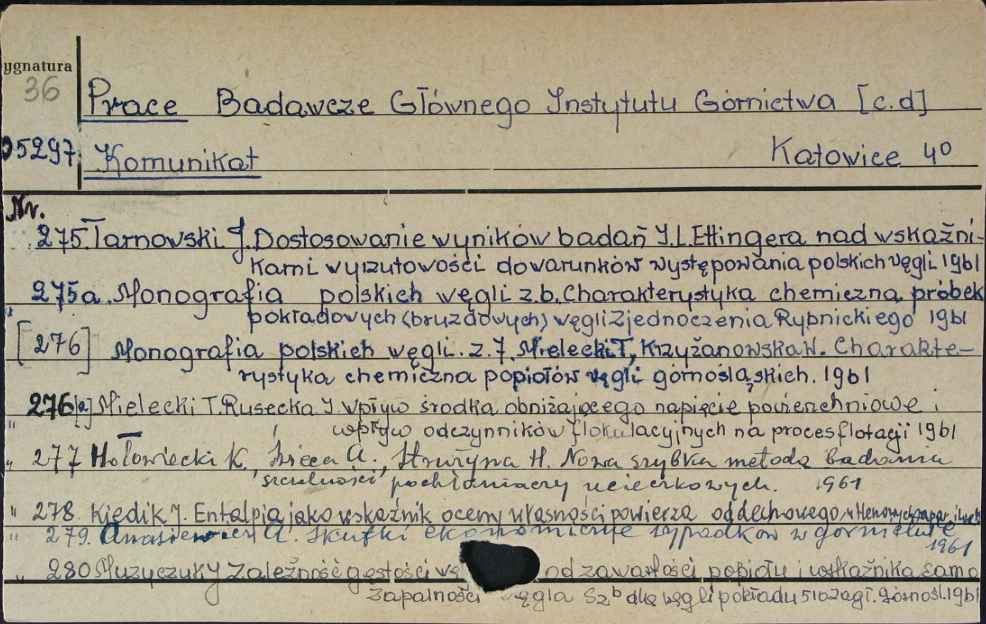 ygnatura
36
Prace Badawcze Głównego Instytutu Górnictwa [c.d]
05297 Komunikat Katowice 4°
Nr.
275. Tarnowski J. Dostosowanie wyników badań I.L. Ettingera nad wskaźni-
kami wyrzutowości do warunków występowania polskich węgli 1961
" 275a. Monografia polskich węgli z.b. Charakterystyka chemiczna próbek
pokładowych (bruzdowych) węgli Zjednoczenia Rybnickiego 1961
[276] Monografia polskich węgli. z. 7. Mielecki T, Krzyżanowska W. Charakte-
rystyka chemiczna popiołów węgli górnośląskich. 1961
276[a] Mielecki T. Rusecka J. Wpływ środka obniżającego napięcie powierzchniowe i
" wpływ odczynników flokulacyjnych na proces flotacji 1961
" 277 Hołowiecki K., A., H. Nowa szybka metoda badania
szczelności pochłaniaczy ucieczkowych. 1961
" 278. Kiedik J. Entalpia jako wskaźnik oceny własności powietrza oddechowego w
" 279. A. Skutki ekonomiczne wypadków w górnictwie
1961
" 280 Muzyczuk J Zależność gęstości wę od zawartości popiołu i wskaźnika samo
zapalności węgla Sz b dla węgli pokładu 510 Zagł. Górnośl. 1961